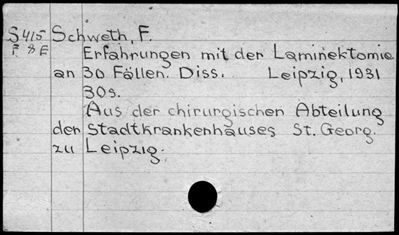 S415 Schweth, F.
F 8E Erfahrungen mit der Laminektomie
an 30 Fällen. Diss. Leipzig, 1931
30s.
Aus der chirurgischen Abteilung
der Stadtkrankenhauses St. Georg.
zu Leipzig.